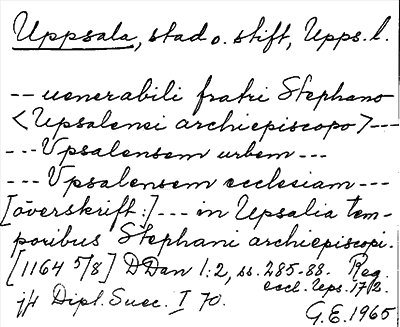 Uppsala, stad o. stift, Upps. l.
-- uenerabili fratri Stephano
<Upsalensi archiepiscopo> ---
--- Vpsalensem urbem ---
--- Vpsalensem ecclesiam ---
[överskrift:] --- in Upsalia tem-
poribus Stephani archiepiscopi.
[1164 5/8] DDan I:2, ss. 285-88. Reg.
eccl. Ups. 17/2.
jfr Dipl. Suec. I 70.
G.E. 1965